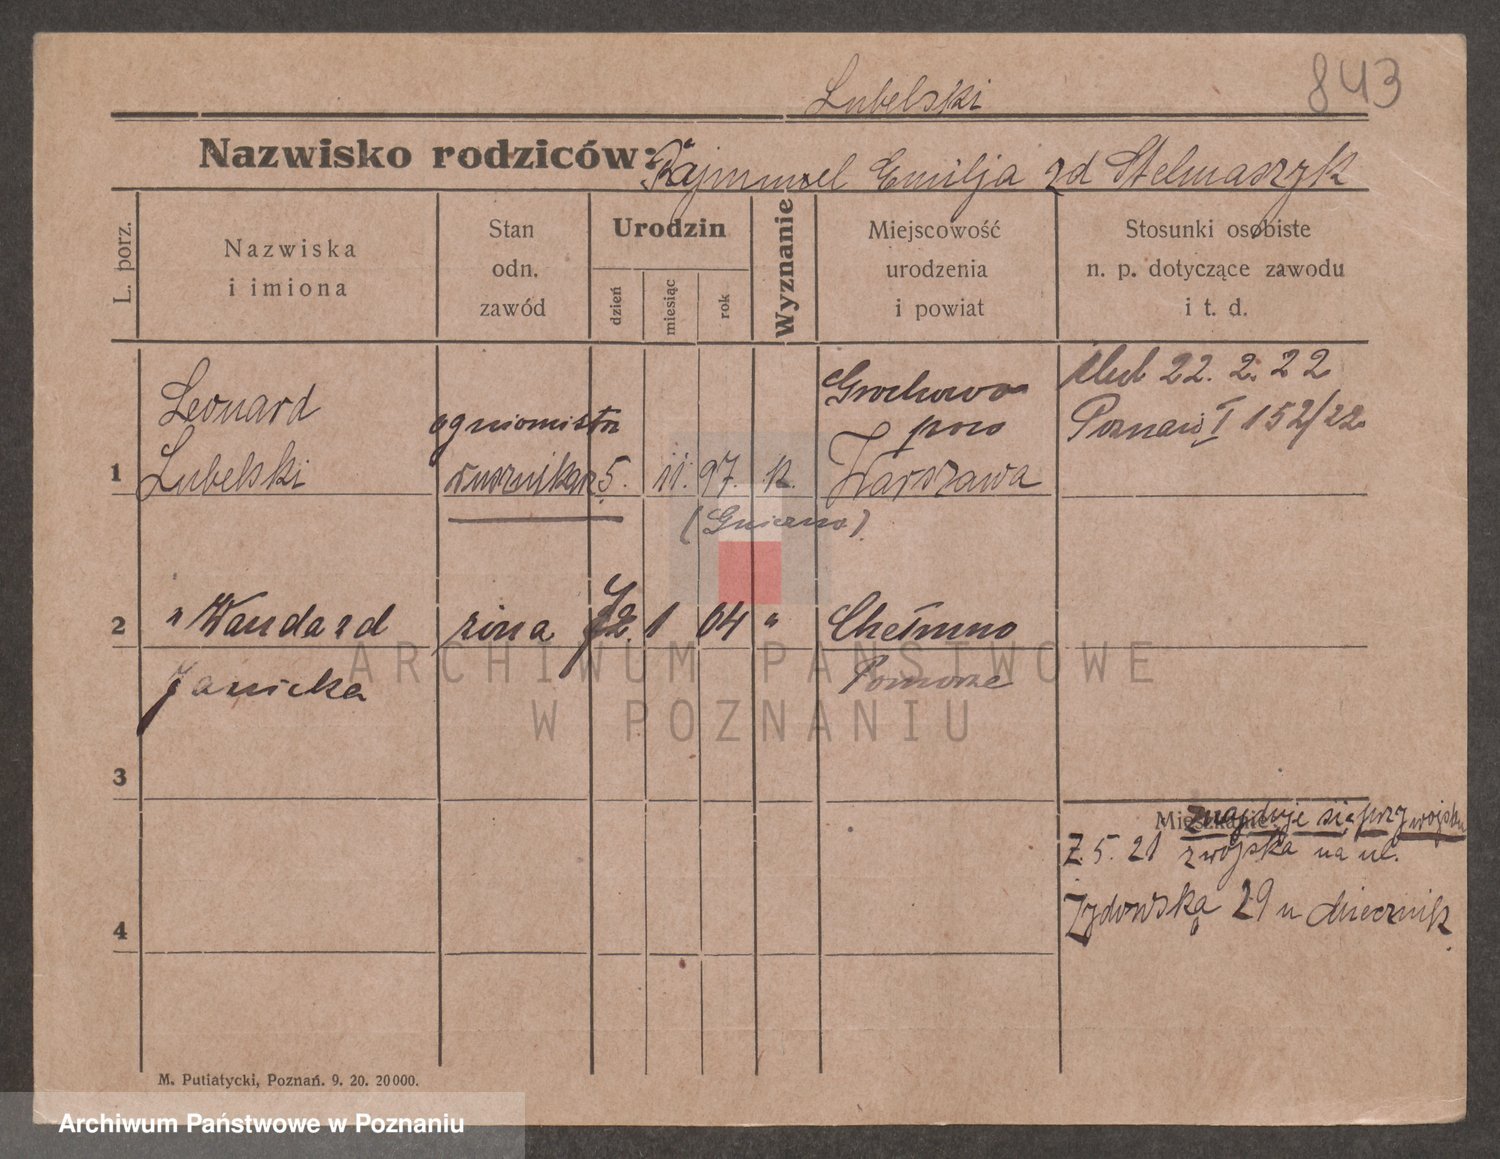 Lubelski
843
Nazwisko rodziców: Rajmund Emilja zd Stelmaszyk
L. porz.
Nazwiska
i imiona
Stan
odn.
zawód
Urodzin
dzień
miesiąc
rok
Wyznanie
Miejscowość
urodzenia
i powiat
Stosunki osobiste
n. p. dotyczące zawodu
i t. d.
Leonard
ogniomistrz
Grochowo
pow
ślub 22. 2. 22
Poznań I 152/22
1 Lubelski rusznikarz 5. 11. 97. k. Warszawa
(Gniezno)
2 " Wanda zd żona 1 04 " Chełmno
Janicka Pomorze
3
Mieszkanie:
znajduje się przy wojsku
2.5.21 z wojska na ul.
Żydowską 29 u
4
M. Putiatycki, Poznań. 9. 20. 20000.
ARCHIWUM PAŃSTWOWE
W POZNANIU
Archiwum Państwowe w Poznaniu